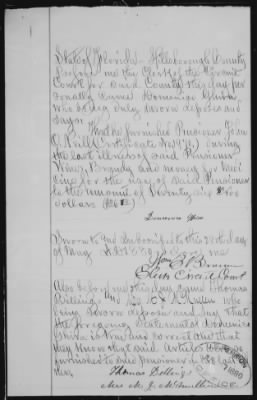 State of Florida Hillsborough County
Before me the Clerk of the Circuit
Court for said County this day per
sonally came Domenico Ghira
who being duly sworn deposes and
says:
That he furnished Pensioner John
O'Neill Certificate No during
the last illness of said Pensioner
Wine, Brandy and money or
for the use of said Pensioner
to the amount of Seventy Six
dollars
Domenico Ghira
Sworn to and Subscribed to this 28th day
of Aug A.D. before me
Wm B. Brown
Clerk Circuit Court
Also before me this day came Thomas
Billings and who
being sworn deposes and say that
the foregoing Statement of Domenico
Ghira is true and correct and that
they know that said Articles were
furnished to said Pensioner in his last
Thomas Billings
Mrs M. J.
1880